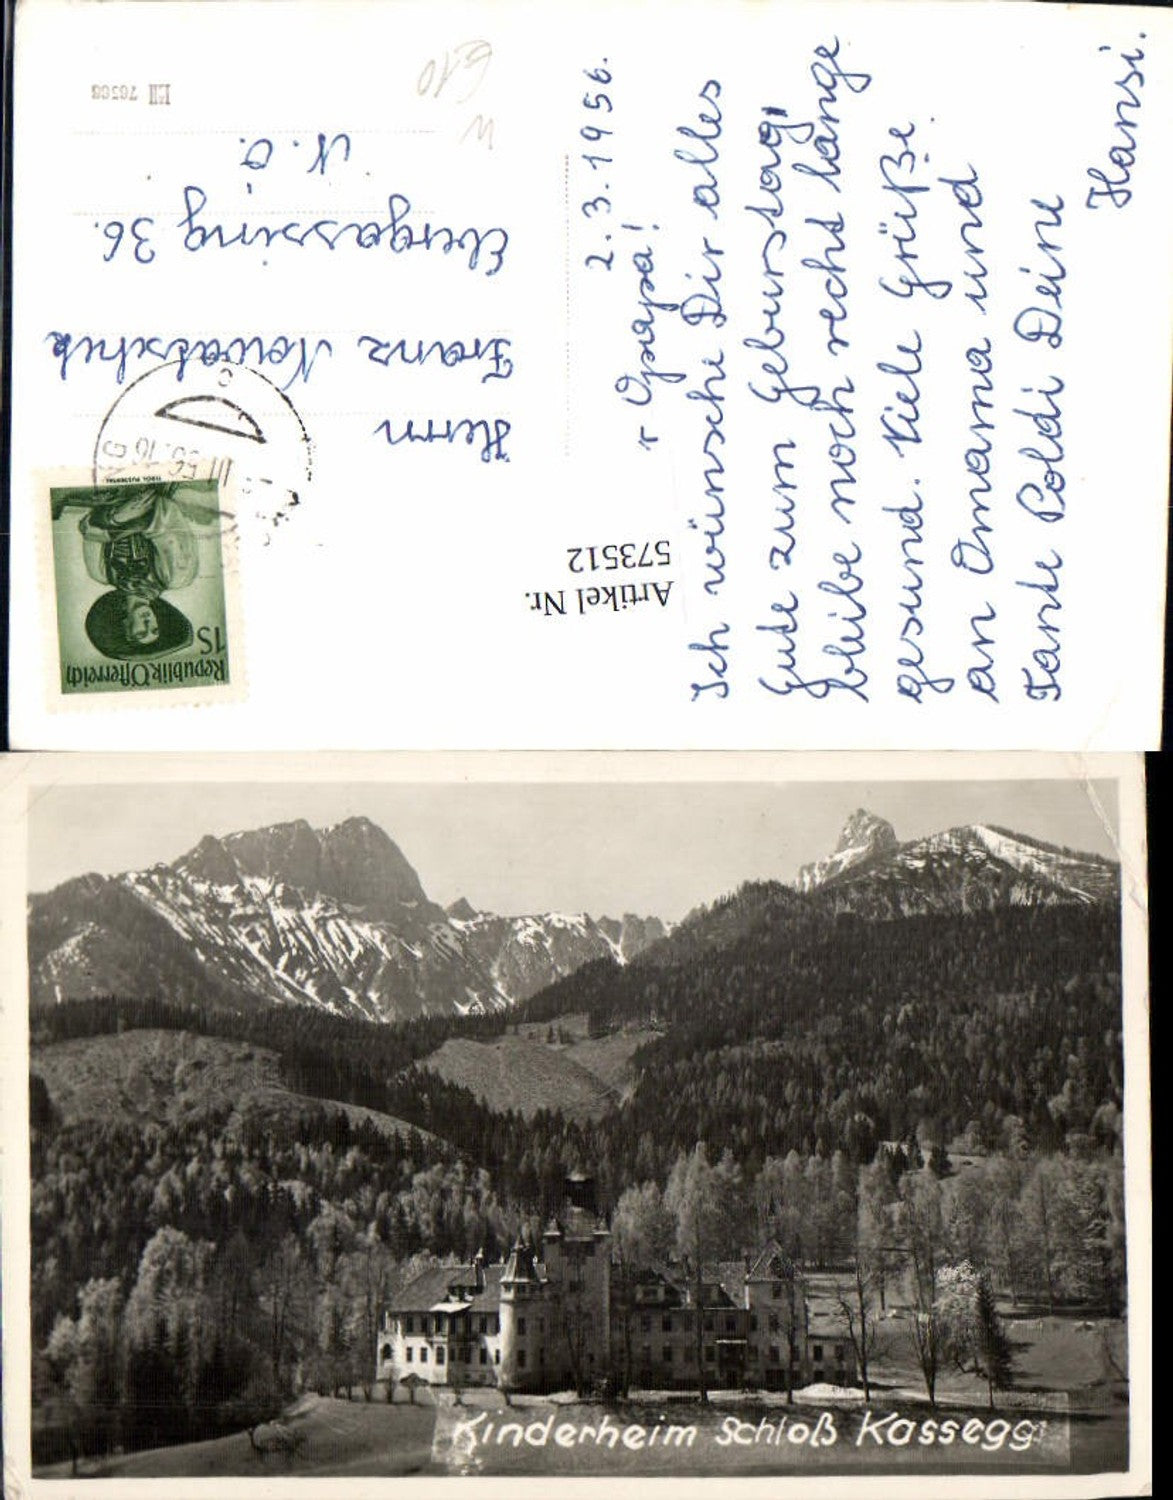 2.3.1956.
r Opapa!
Ich wünsche Dir alles
Gute zum Geburtstag,
bleibe noch recht lange
gesund. Viele Grüße
an Omama und
Tante Poldi Deine
Hansi.
Artikel Nr.
573512
Herrn
Franz Nowatschek
Ebergassing 36.
N.Ö.
Republik Österreich
1S
TIROL PUSTERTAL
III 56.18
E10
Kinderheim Schloß Kassegg